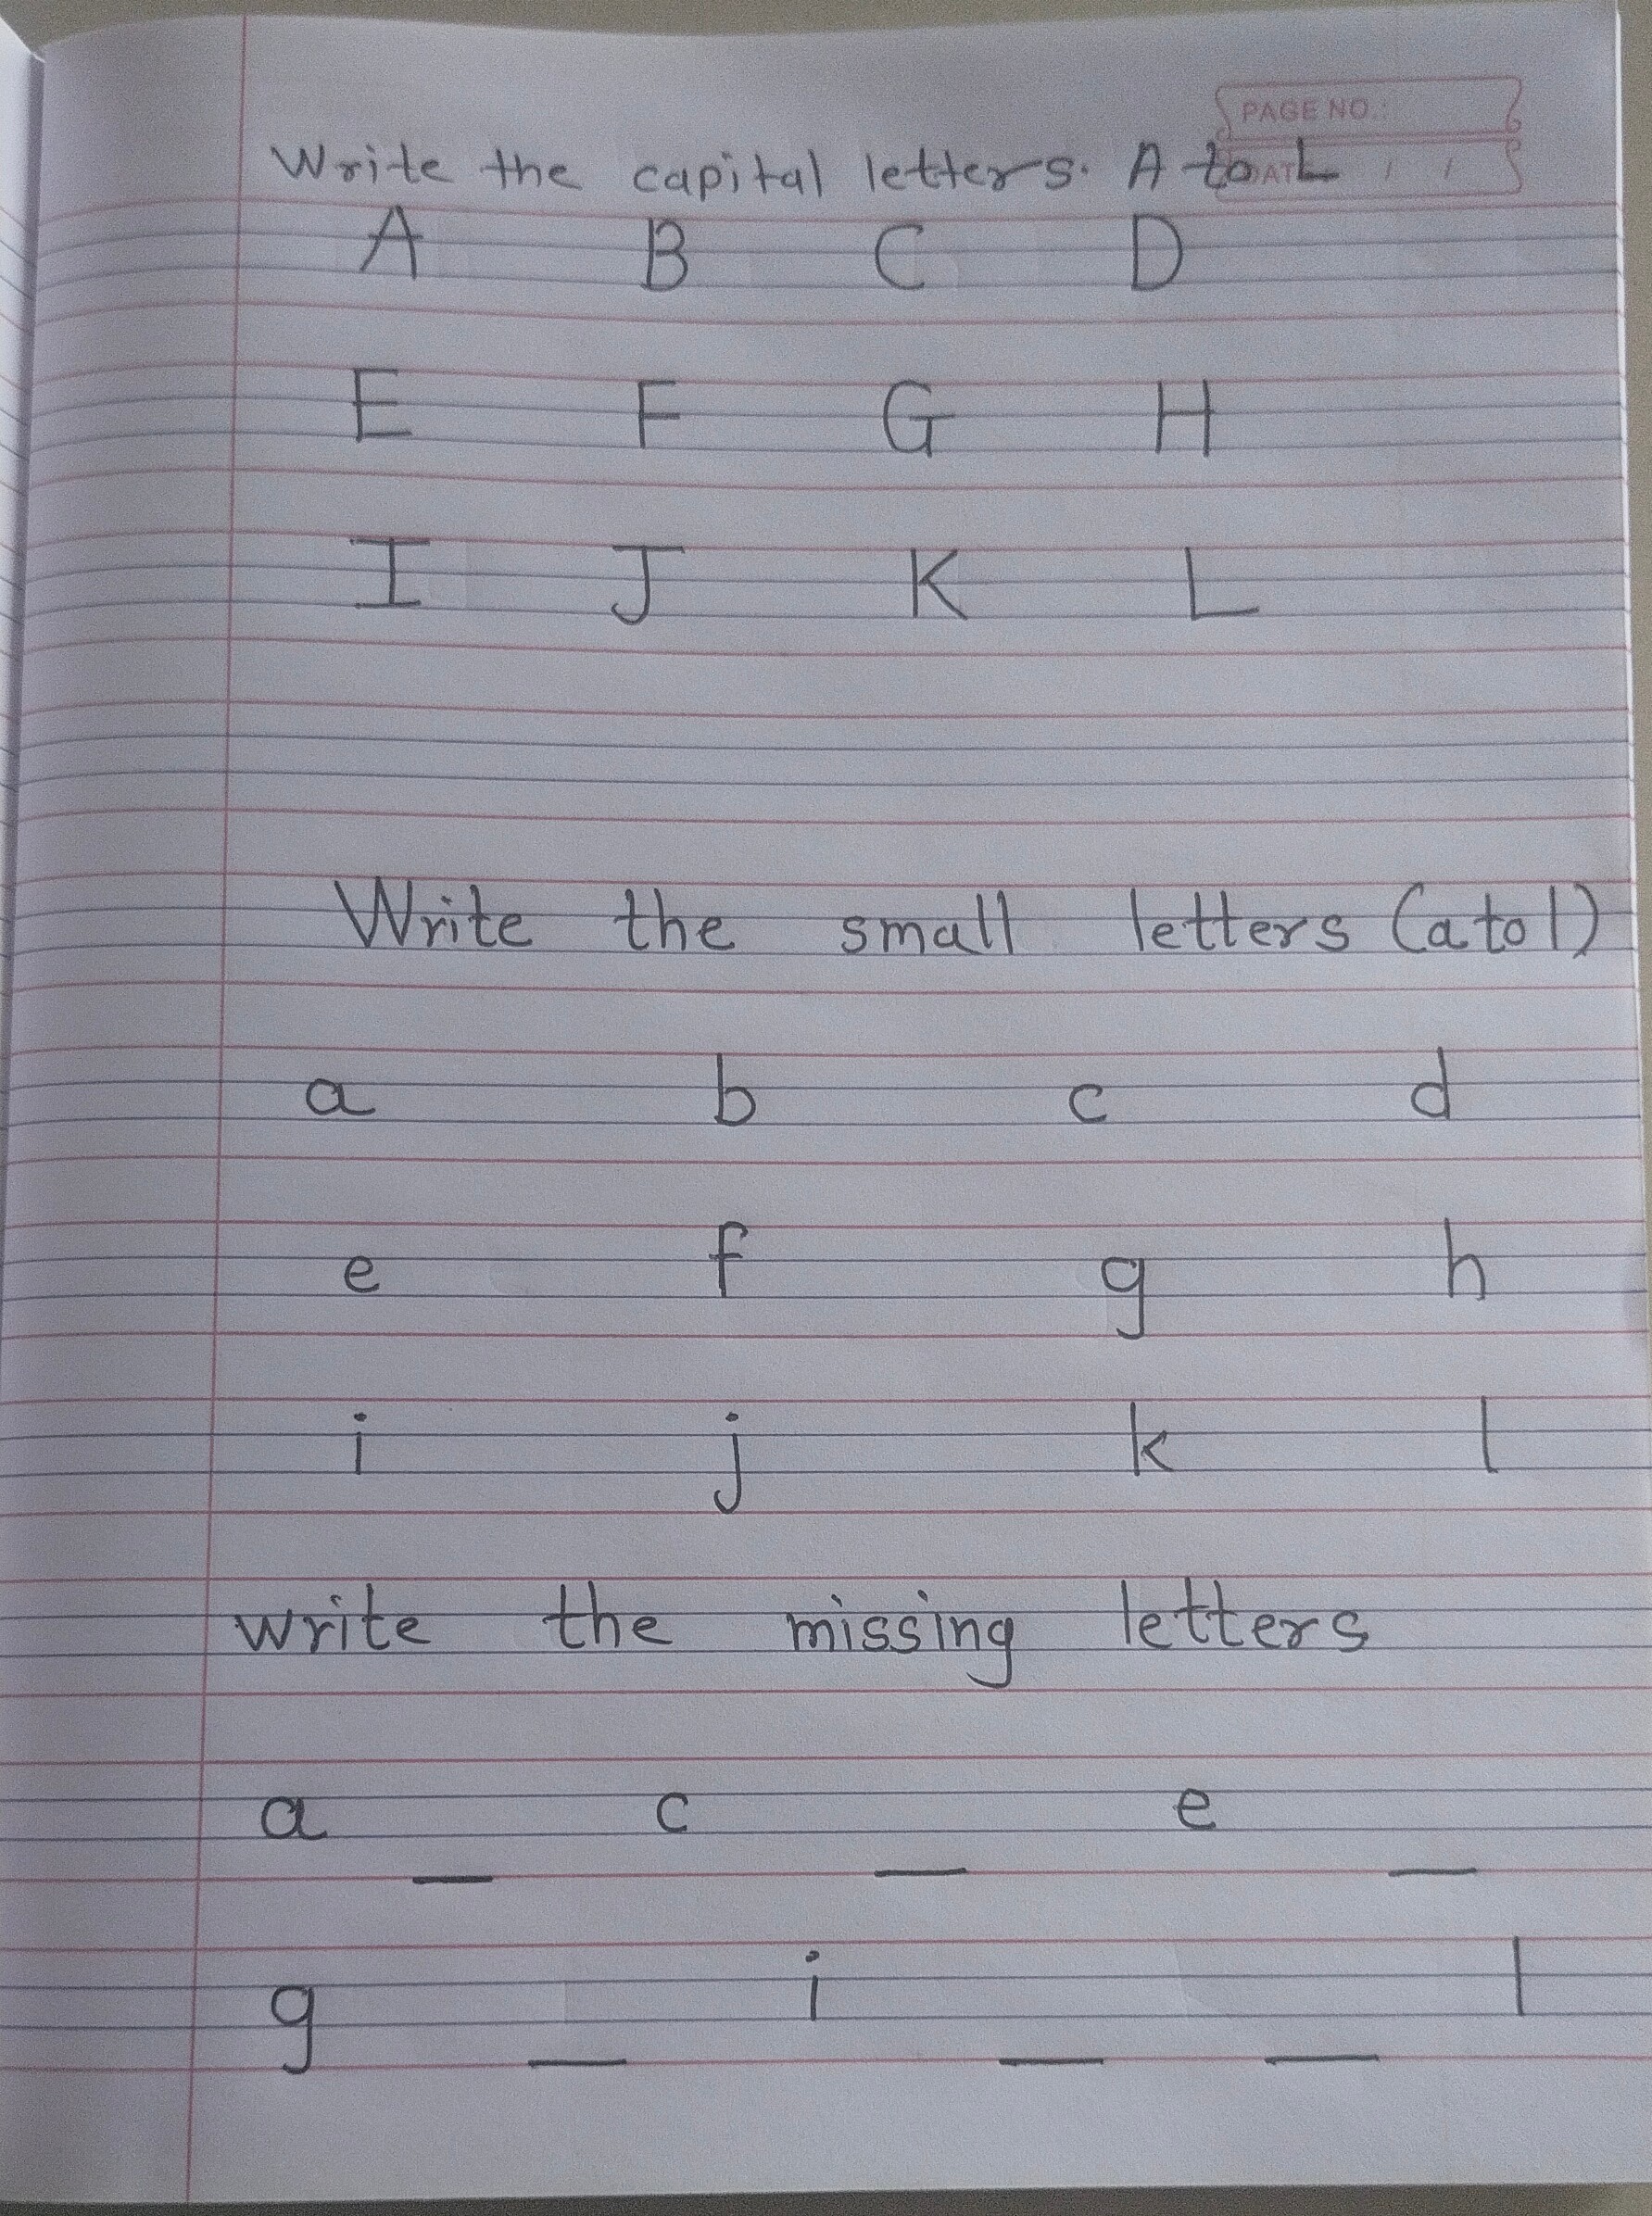 PAGE NO.:
Write the capital letters. A to L
DATE / /
A B C D
E F G H
I J K L
Write the small letters (a to l)
a b c d
e f g h
i j k l
write the missing letters
a _ c _ e _
g _ i _ _ l